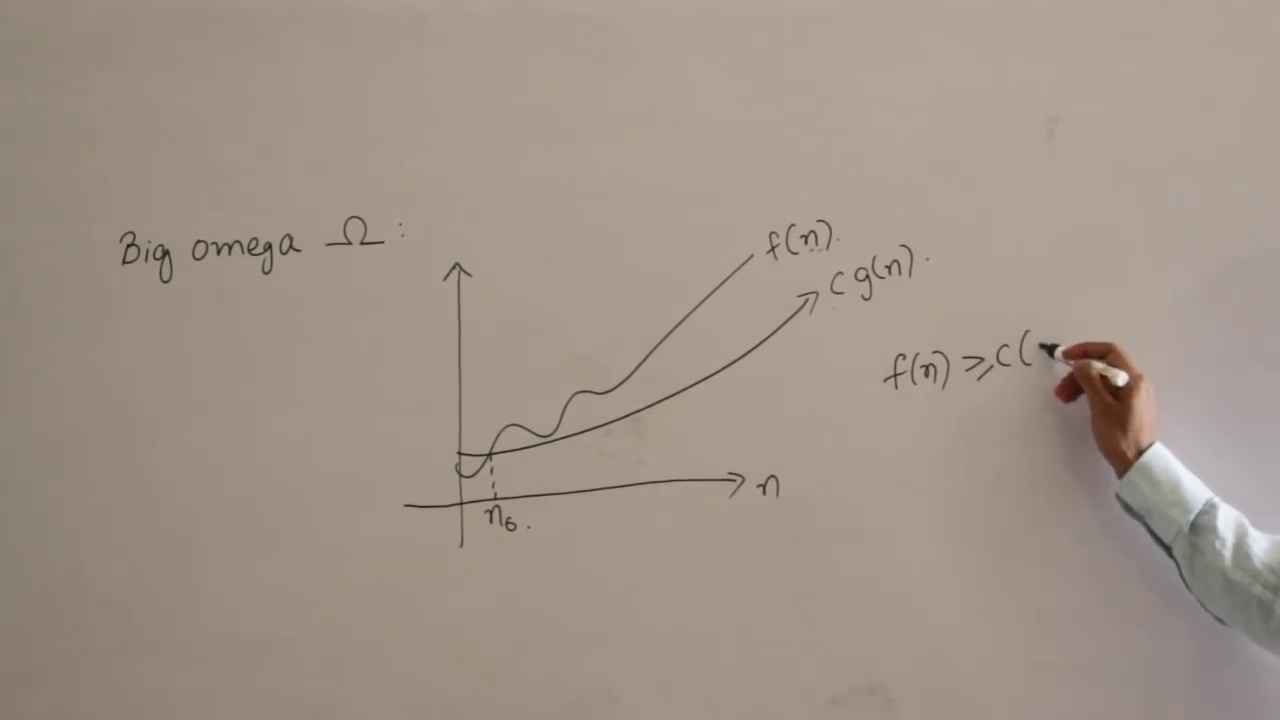 Big omega Ω :
f(n).
c g(n).
f(n) ≥ c(
n
n₀.